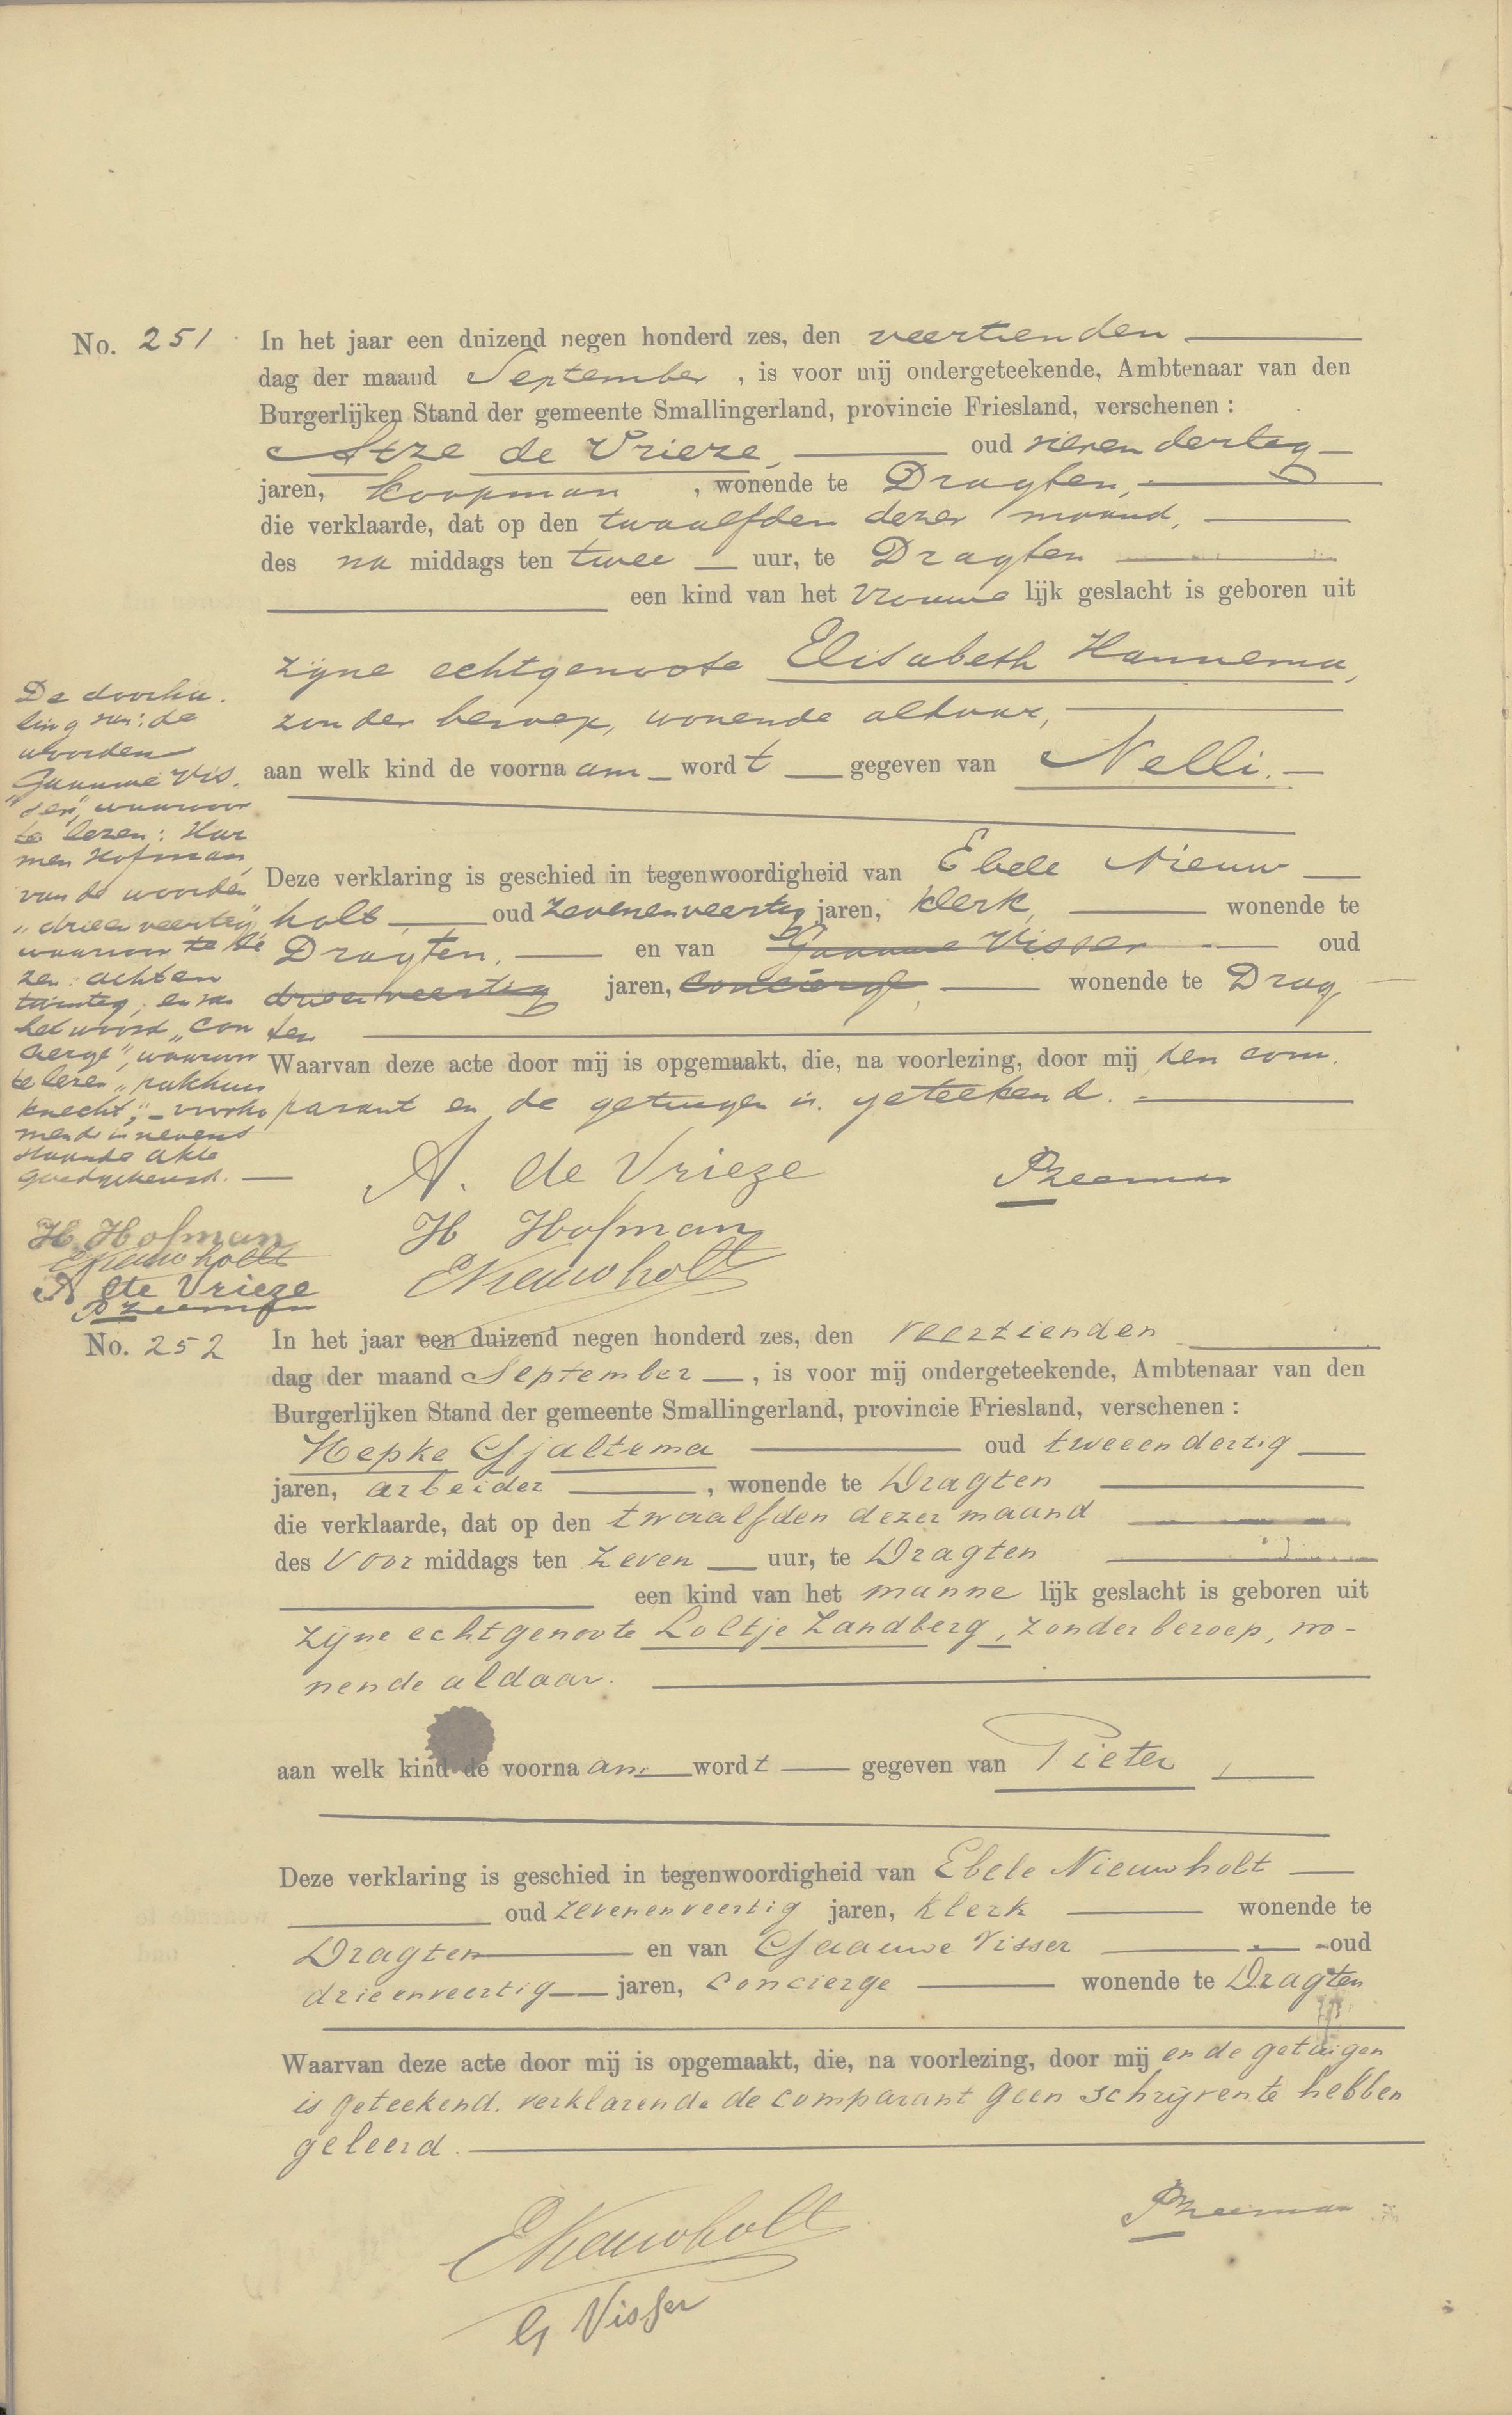 No. 251
In het jaar een duizend negen honderd zes, den veertienden
dag der maand September, is voor mij ondergeteekende, Ambtenaar van den
Burgerlijken Stand der gemeente Smallingerland, provincie Friesland, verschenen :
Atze de Vrieze, oud vierendertig
jaren, koopman, wonende te Dragten,
die verklaarde, dat op den twaalfden dezer maand,
des na middags ten twee uur, te Dragten
een kind van het vrouwe lijk geslacht is geboren uit
zijne echtgenoote Elisabeth Hannema,
zonder beroep, wonende aldaar,
aan welk kind de voornaam wordt gegeven van Nelli.
Deze verklaring is geschied in tegenwoordigheid van Ebele Nieuw
holt oud zevenenveertig jaren, klerk, wonende te
Dragten, en van Gaauwe Visser oud
drieenveertig jaren, concierge, wonende te Drag
ten
Waarvan deze acte door mij is opgemaakt, die, na voorlezing, door mij den com
parant en de getuigen is geteekend.
De doorha
ling van: de
woorden
Gaauwe Vis
ser", waarvoor
te lezen: Har
men Hofman
van de woorden
"drieenveertig"
waarvoor te le
zen: achten
twintig, en van
het woord "con
cierge", waarvoor
te lezen "pakhuis
knecht", voorko
mende in nevens
staande akte
goedgekeurd.
A. de Vrieze
H Hofman
ENieuwholt
PZeeman
H. Hofman
ENieuwholt
A de Vrieze
PZeeman
No. 252
In het jaar een duizend negen honderd zes, den veertienden
dag der maand September, is voor mij ondergeteekende, Ambtenaar van den
Burgerlijken Stand der gemeente Smallingerland, provincie Friesland, verschenen :
Hepke Gjaltema oud tweeendertig
jaren, arbeider, wonende te Dragten
die verklaarde, dat op den twaalfden dezer maand
des Voor middags ten zeven uur, te Dragten
een kind van het manne lijk geslacht is geboren uit
zijne echtgenoote Loltje Landberg, zonder beroep, wo-
nende aldaar.
aan welk kind de voornaam wordt gegeven van Pieter
Deze verklaring is geschied in tegenwoordigheid van Ebele Nieuwholt
oud zevenenveertig jaren, klerk wonende te
Dragten en van Gaauwe Visser oud
drieenveertig jaren, concierge wonende te Dragten
Waarvan deze acte door mij is opgemaakt, die, na voorlezing, door mij en de getuigen
is geteekend. verklarende de comparant geen schrijven te hebben
geleerd.
ENieuwholt
PZeeman
G Visser